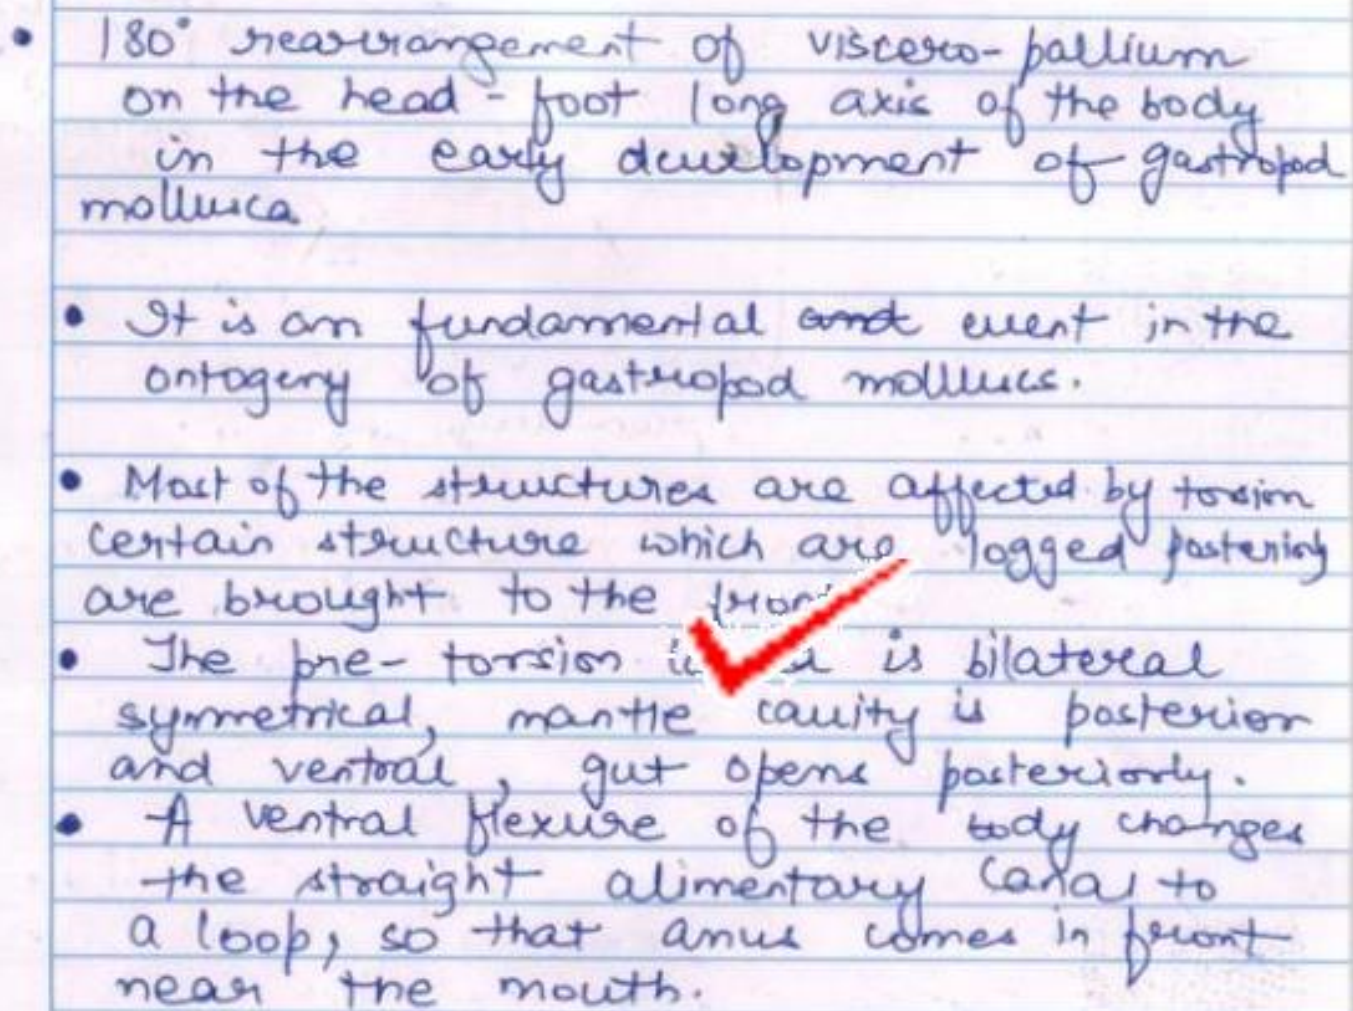 • 180° rearrangement of viscero-pallium
on the head-foot long axis of the body
in the early development of gastropod
mollusca
• It is an fundamental and event in the
ontogeny of gastropod molluscs.
• Most of the structures are affected by torsion
certain structure which are logged posteriorly
are brought to the front
• The pre-torsion is bilateral
symmetrical, mantle cavity is posterior
and ventral, gut opens posteriorly.
• A ventral flexure of the body changes
the straight alimentary canal to
a loop, so that anus comes in front
near the mouth.